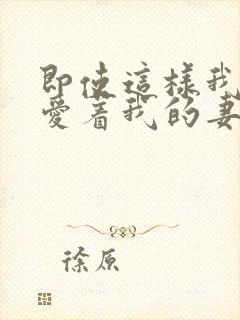 即使這樣我
愛着我的妻
徐原